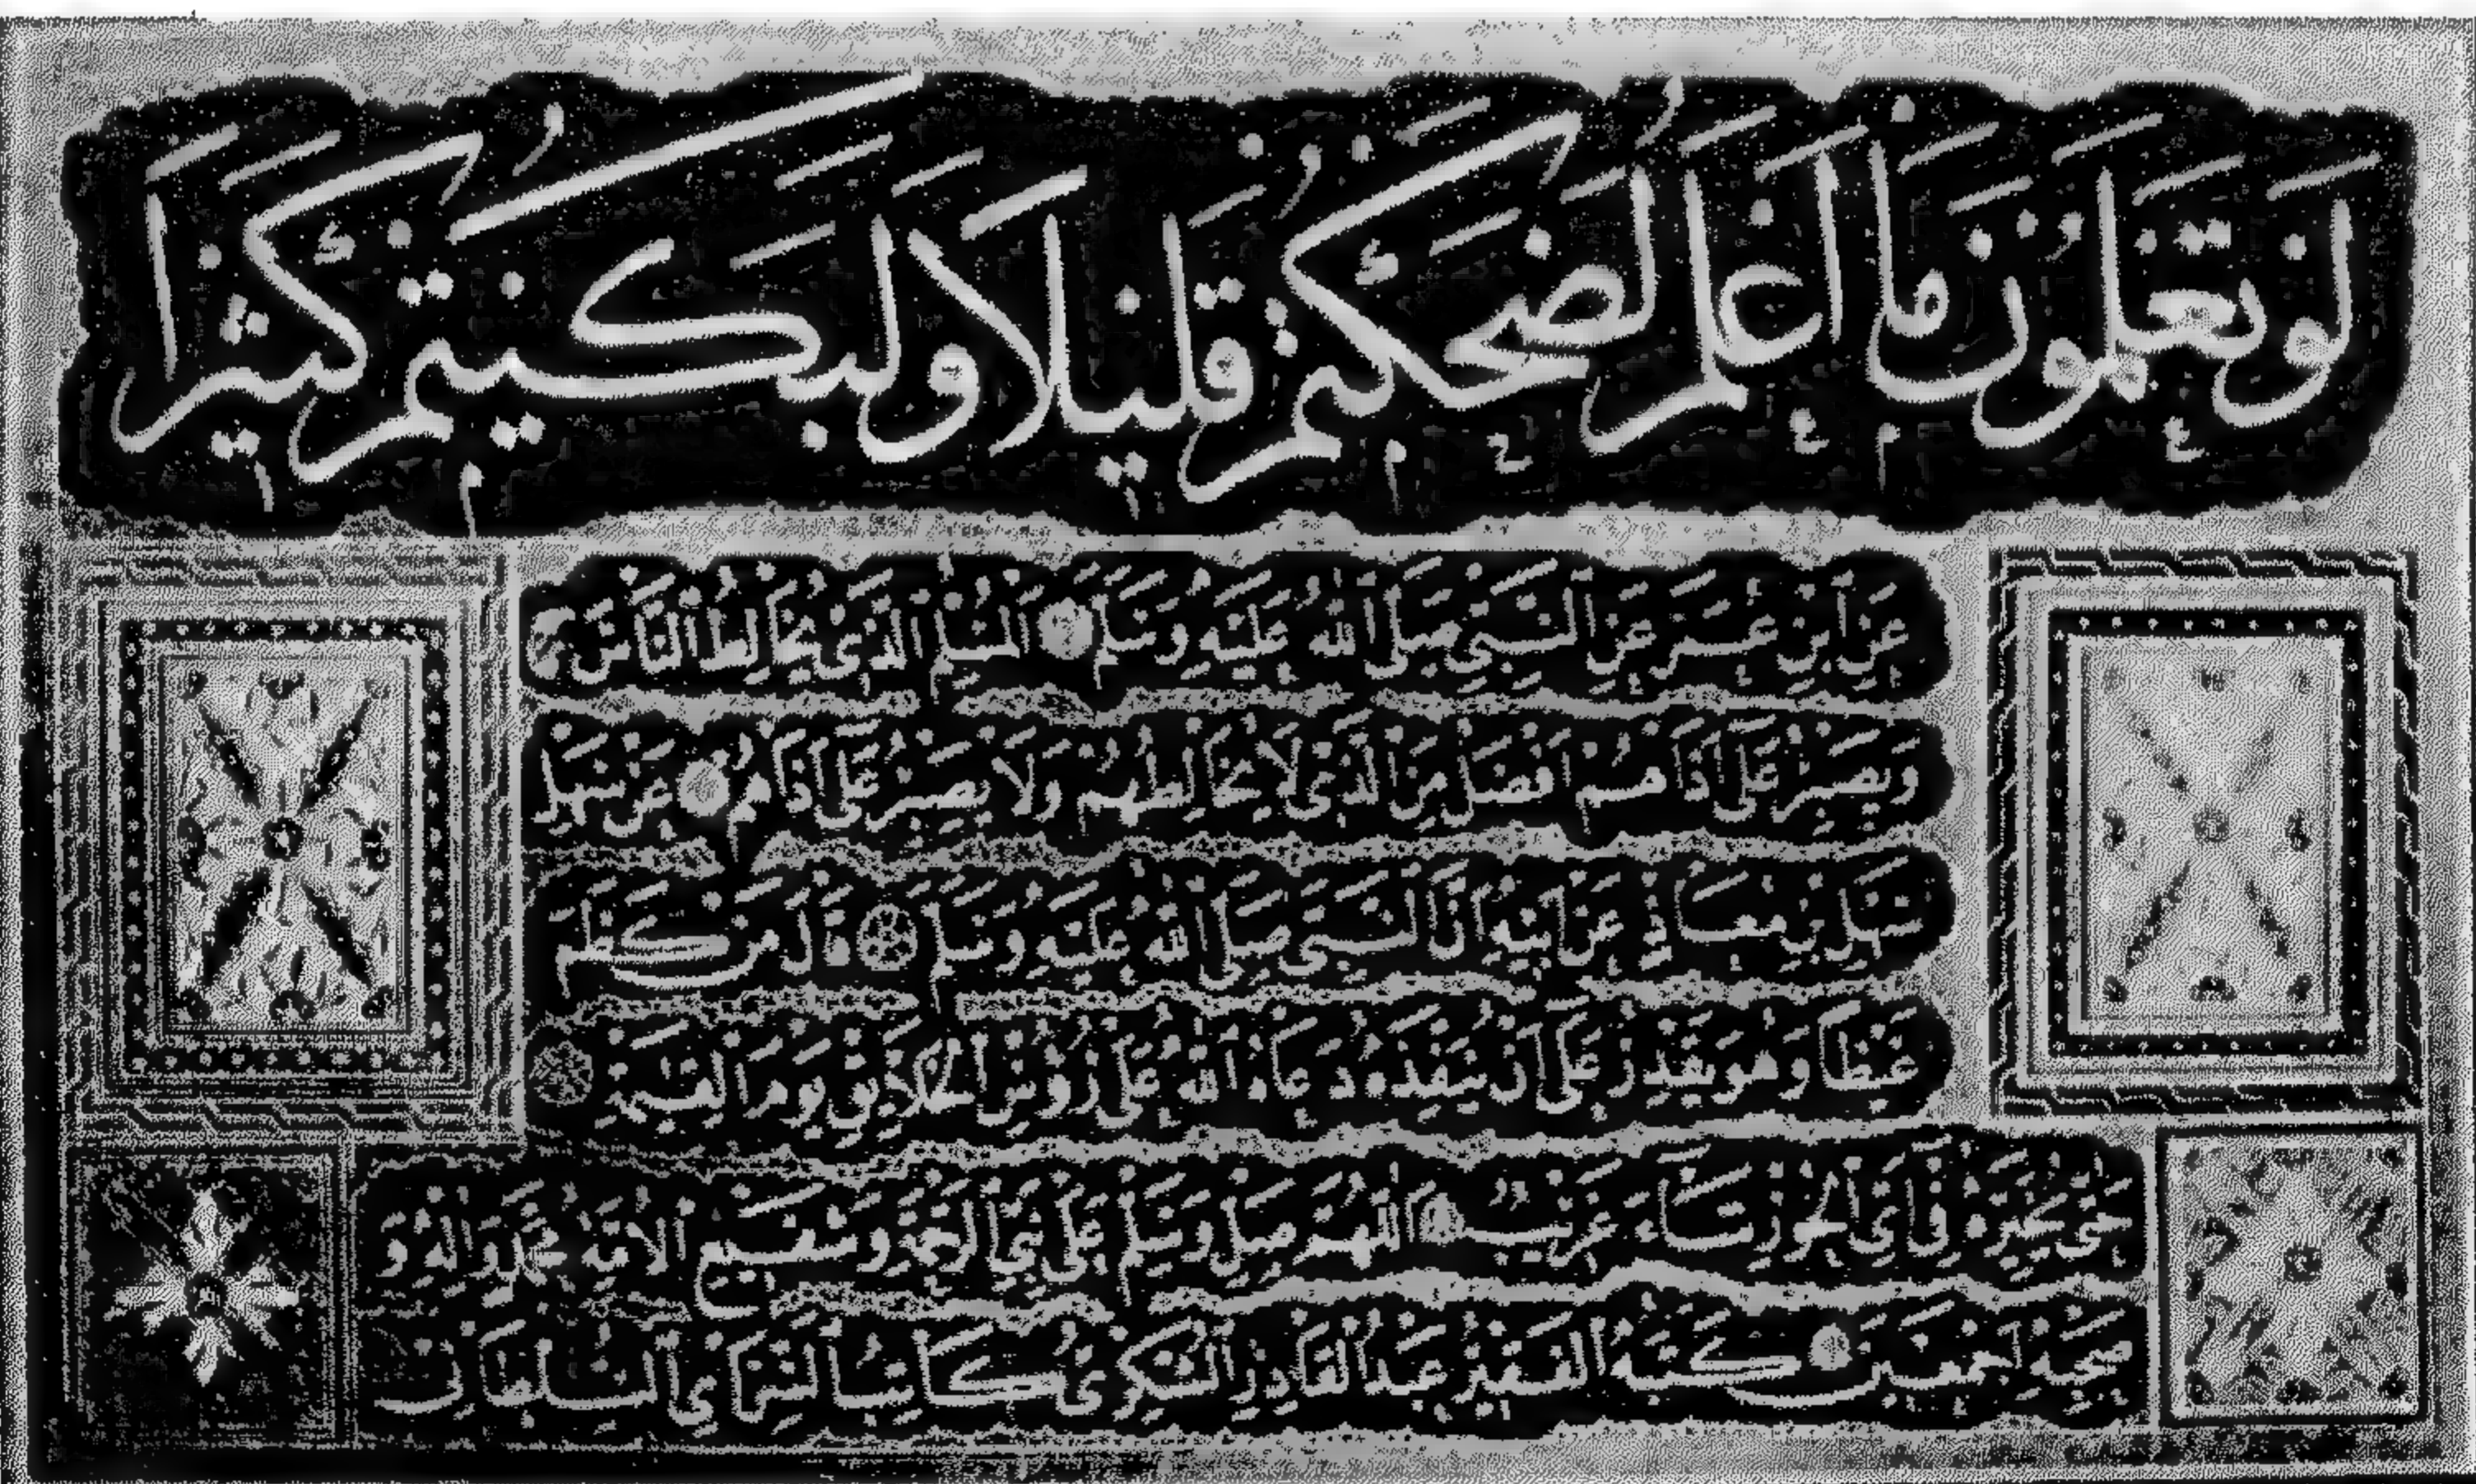 لَوْ تَعْلَمُونَ مَا أَعْلَمُ لَضَحِكْتُمْ قَلِيلًا وَلَبَكَيْتُمْ كَثِيرًا
عَنِ ابْنِ عُمَرَ عَنِ النَّبِيِّ صَلَّى اللهُ عَلَيْهِ وَسَلَّمَ الْمُسْلِمُ الَّذِي يُخَالِطُ النَّاسَ
وَيَصْبِرُ عَلَى أَذَاهُمْ أَفْضَلُ مِنَ الَّذِي لَا يُخَالِطُهُمْ وَلَا يَصْبِرُ عَلَى أَذَاهُمْ عَنْ سَهْلِ
سَهْلِ بْنِ مُعَاذٍ عَنْ أَبِيهِ أَنَّ النَّبِيَّ صَلَّى اللهُ عَلَيْهِ وَسَلَّمَ قَالَ مَنْ كَظَمَ
غَيْظًا وَهُوَ يَقْدِرُ عَلَى أَنْ يُنَفِّذَهُ دَعَاهُ اللهُ عَلَى رُؤُسِ الْخَلَائِقِ يَوْمَ الْقِيٰمَةِ
حَتَّى يُخَيِّرَهُ فِي أَيِّ الْحُورِ شَاءَ غَرِيبٌ اَللّٰهُمَّ صَلِّ وَسَلِّمْ عَلَى نَبِيِّ الرَّحْمَةِ وَشَفِيعِ الْأُمَّةِ مُحَمَّدٍ وَآلِهِ وَ
صَحْبِهِ أَجْمَعِينَ كَتَبَهُ الْفَقِيرُ عَبْدُ الْقَادِرِ الشُّكْرِيُّ كَاتِبُ السَّرَايِ السُّلْطَانِ